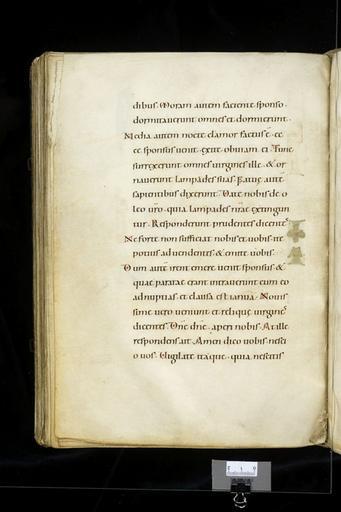 dibus. Moram autem faciente sponso.
dormitauerunt omnes et dormierunt.
Media autem nocte clamor factus ē. ec
ce sponsus uenit. exite obuiam ei. Tunc
surrexerunt omnes uirgines ille. & or
nauerunt lampades suas. Fatue autē
sapientibus dixerunt. Date nobis de o
leo uro. quia lampades nrae extingun
tur. Responderunt prudentes dicentes.
Ne forte non sufficiat nobis et uobis. ite
potius ad uendentes & emite uobis.
Dum autē irent emere. uenit sponsus &
quae paratae erant intrauerunt cum eo
ad nuptias. et clausa est ianua. Nouis
sime uero ueniunt et relique uirgines
dicentes. Dñe dñe. aperi nobis. At ille
respondens ait. Amen dico uobis. nesci
o uos. Uigilate itaque. quia nescitis